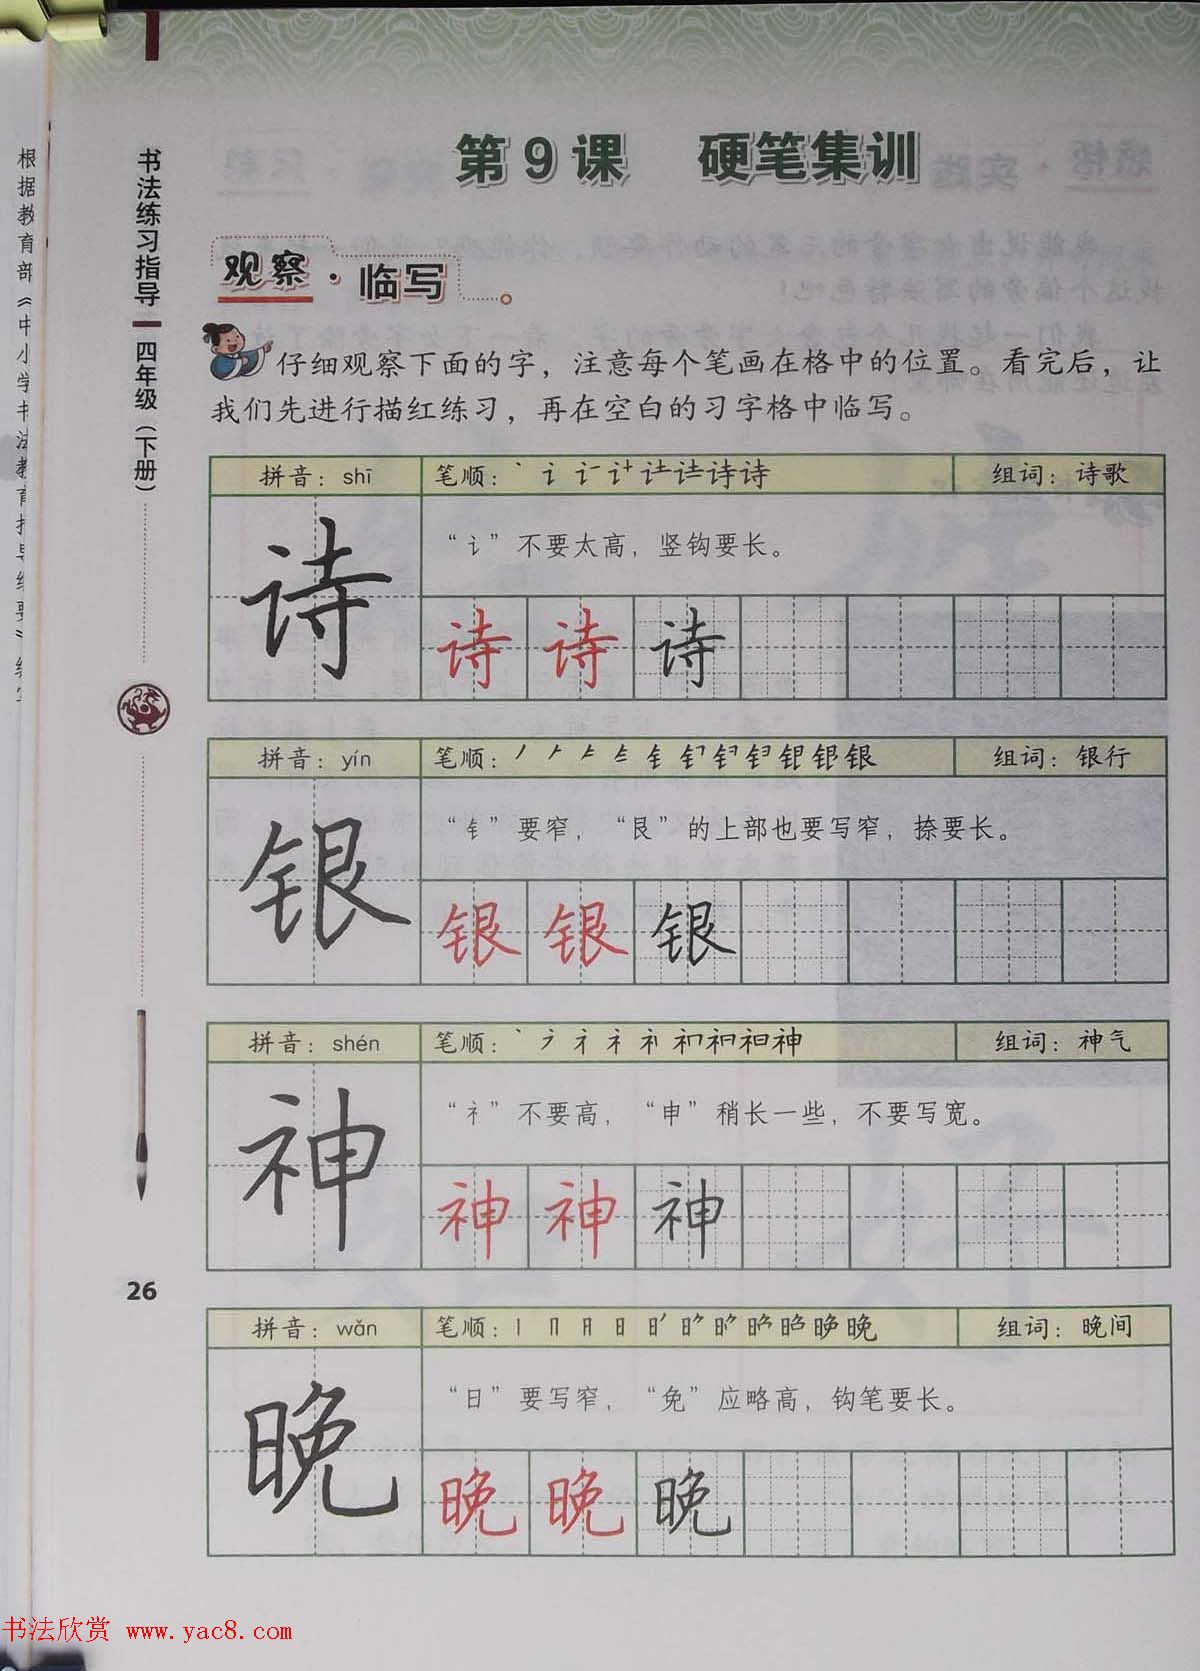 根据教育部《中小学书法教育指导纲要》
书法练习指导 四年级(下册)
第9课 硬笔集训
观察·临写
仔细观察下面的字，注意每个笔画在格中的位置。看完后，让
我们先进行描红练习，再在空白的习字格中临写。
拼音：shī 笔顺： 诗诗 组词：诗歌
诗
“讠”不要太高，竖钩要长。
诗 诗 诗
拼音：yín 笔顺： 银 组词：银行
银
“钅”要窄，“艮”的上部也要写窄，捺要长。
银 银 银
拼音：shén 笔顺： 神 组词：神气
神
“礻”不要高，“申”稍长一些，不要写宽。
神 神 神
拼音：wǎn 笔顺： 晚 组词：晚间
晚
“日”要写窄，“免”应略高，钩笔要长。
晚 晚 晚
26
书法欣赏 www.yac8.com